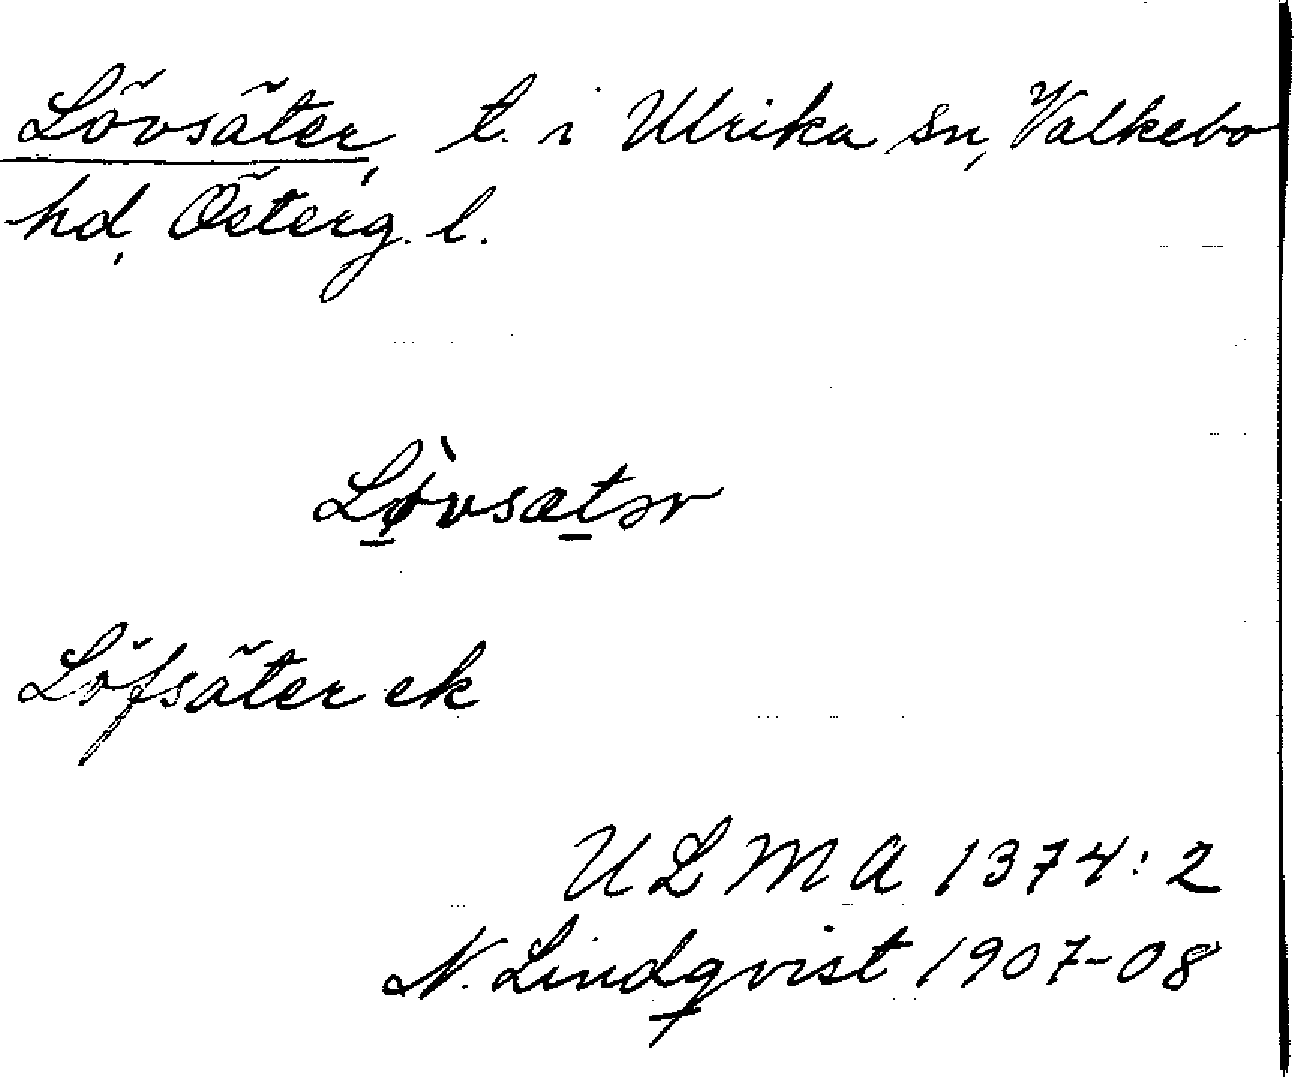 Lövsäter, t. i Ulrika sn, Valkebo
hd, Österg. l.
Lø̠̀vsæt̠ər
Löfsäter ek
ULMA 1374:2
N. Lindqvist 1907-08